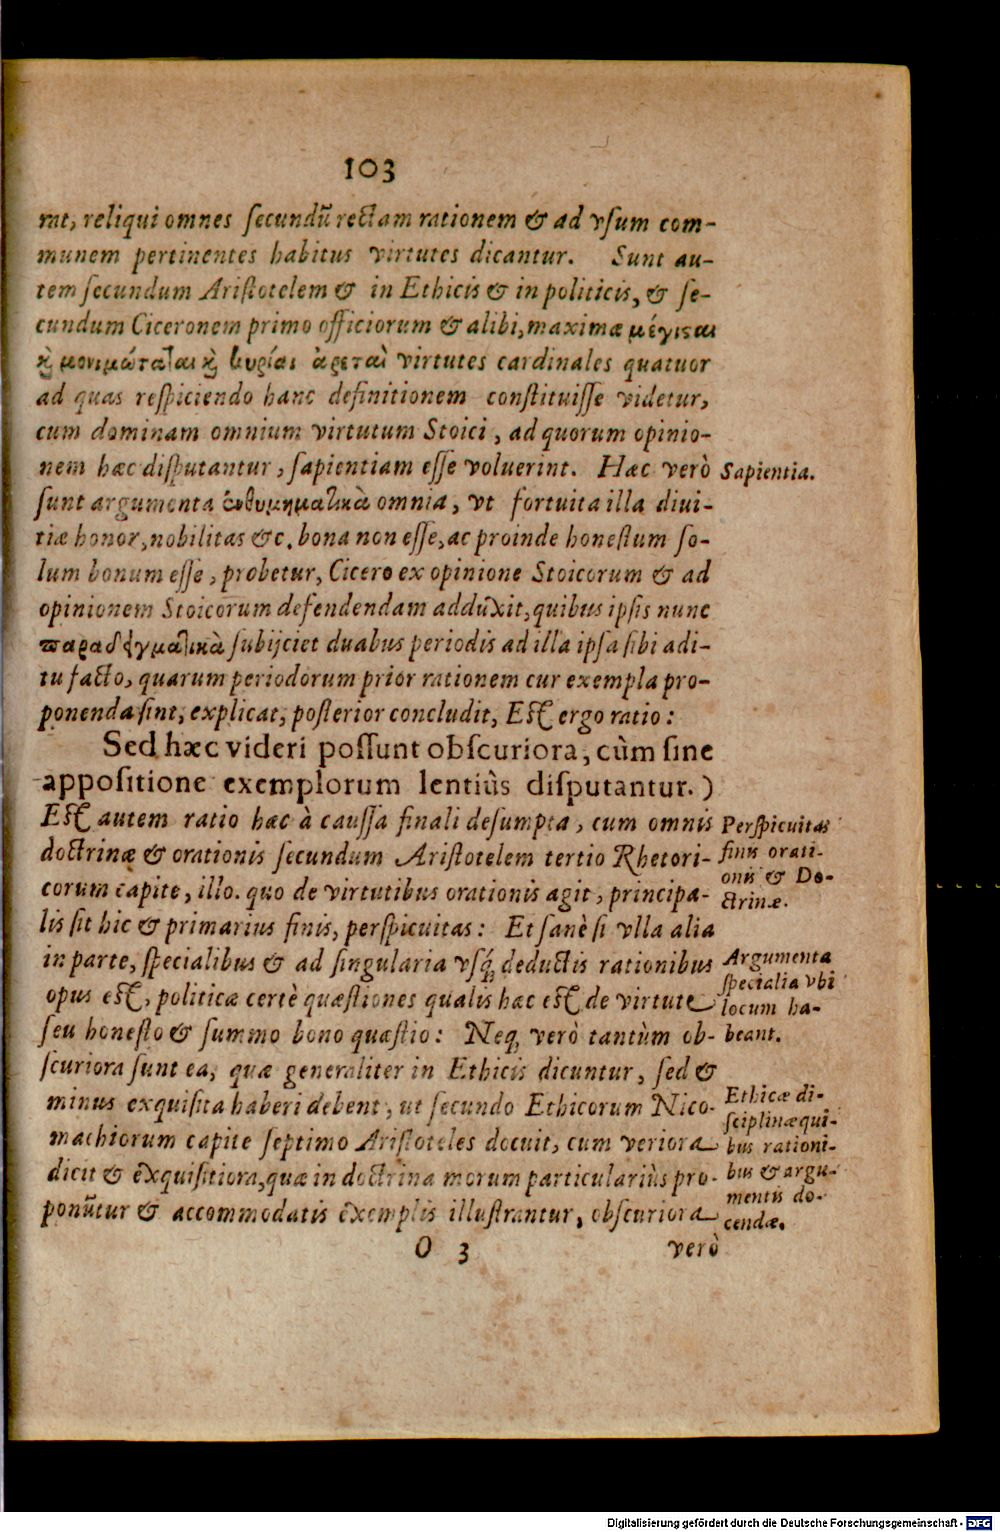 103
rat, reliqui omnes ſecundũ rectam rationem & ad vſum com-
munem pertinentes habitus virtutes dicantur. Sunt au-
tem ſecundum Ariſtotelem & in Ethicis & in politicis, & ſe-
cundum Ciceronem primo officiorum & alibi, maximæ μέγιϛαι
ϗ μονιμώταται ϗ κυρίαι ἀρεταὶ virtutes cardinales quatuor
ad quas reſpiciendo hanc definitionem conſtituiſſe videtur,
cum dominam omnium virtutum Stoici, ad quorum opinio-
nem hæc diſputantur, ſapientiam eſſe voluerint. Hæc verò
Sapientia.
ſunt argumenta ἐνθυμηματικὰ omnia, vt fortuita illa diui-
tiæ honor, nobilitas &c. bona non eſſe, ac proinde honeſtum ſo-
lum bonum eſſe, probetur, Cicero ex opinione Stoicorum & ad
opinionem Stoicorum defendendam adduxit, quibus ipſis nunc
παραδειγματικὰ ſubijciet duabus periodis ad illa ipſa ſibi adi-
tu facto, quarum periodorum prior rationem cur exempla pro-
ponenda ſint, explicat, poſterior concludit, Eſt ergo ratio:
Sed hæc videri poſſunt obſcuriora, cùm ſine
appoſitione exemplorum lentiùs diſputantur.)
Eſt autem ratio hæc à cauſſa finali deſumpta, cum omnis
doctrinæ & orationis ſecundum Ariſtotelem tertio Rhetori-
corum capite, illo. quo de virtutibus orationis agit, principa-
lis ſit hic & primarius finis, perſpicuitas: Et ſanè ſi vlla alia
in parte, ſpecialibus & ad ſingularia vſq́; deductis rationibus
opus eſt, politicæ certè quæſtiones qualis hæc eſt de virtute
ſeu honeſto & ſummo bono quæſtio: Neq; verò tantùm ob-
ſcuriora ſunt ea, quæ generaliter in Ethicis dicuntur, ſed &
minus exquiſita haberi debent, ut ſecundo Ethicorum Nico-
machiorum capite ſeptimo Ariſtoteles docuit, cum veriora
dicit & exquiſitiora, quæ in doctrina morum particulariùs pro-
ponũtur & accommodatis exemplis illuſtrantur, obſcuriora
Perſpicuitas
finis orati-
onis & Do-
ctrinæ.
Argumenta
ſpecialia vbi
locum ha-
beant.
Ethicæ di-
ſciplinæ qui-
bus rationi-
bus & argu-
mentis do-
cendæ.
O 3
verò
Digitalisierung gefördert durch die Deutsche Forschungsgemeinschaft - DFG